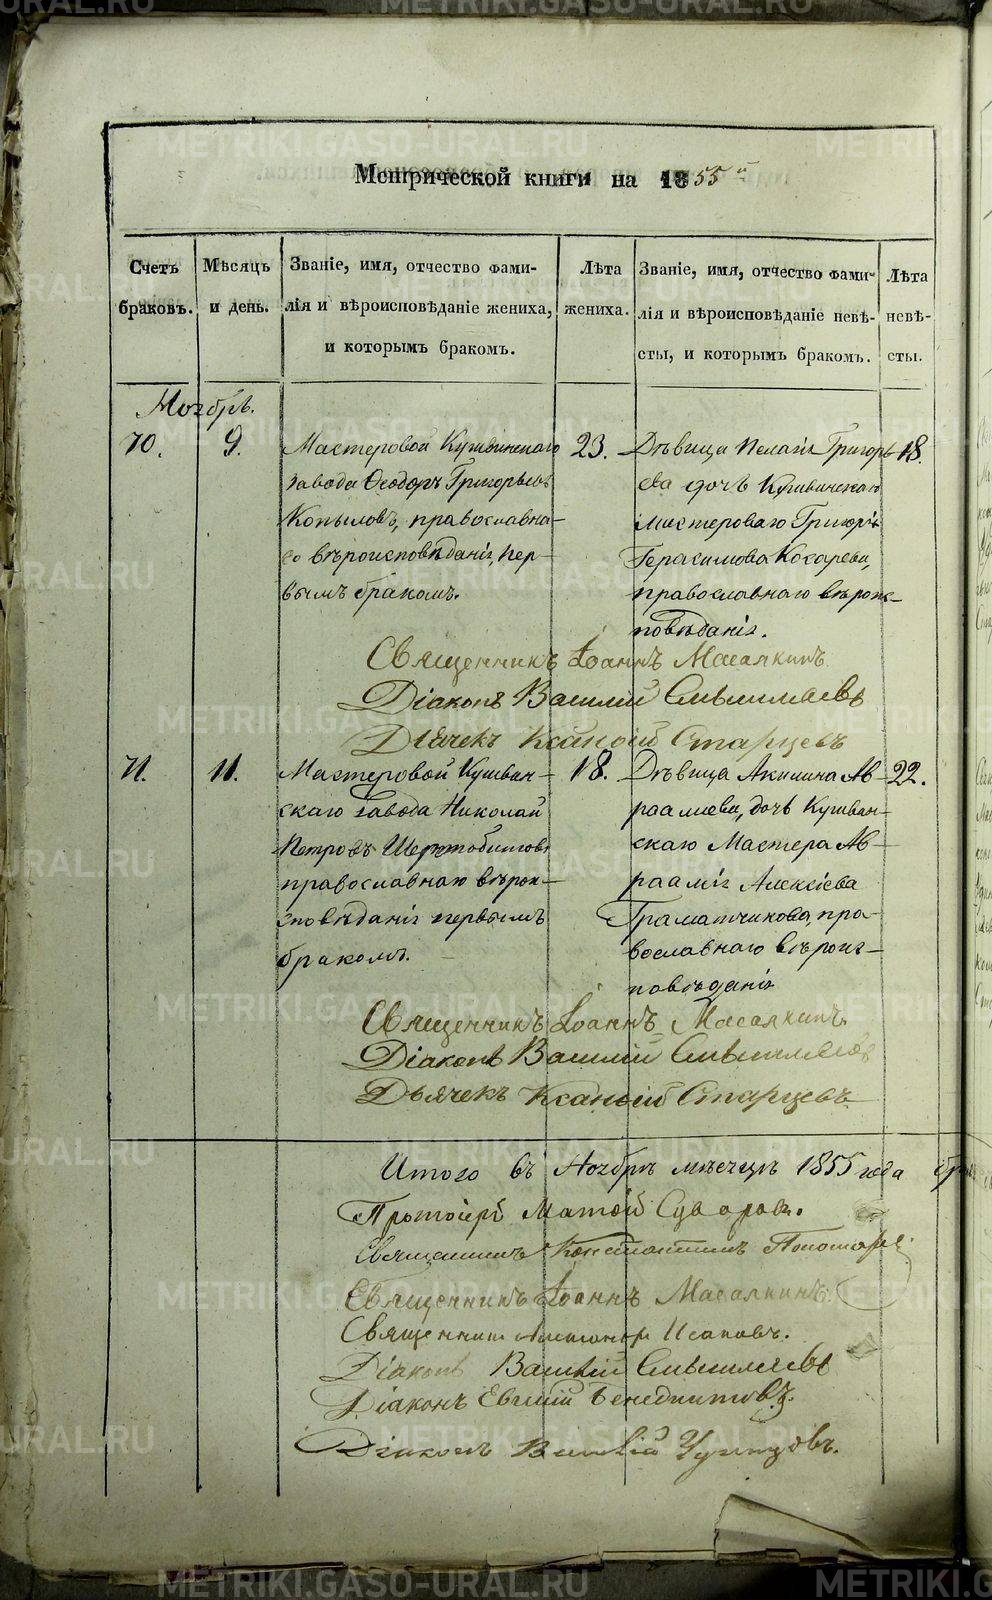 METRIKI.GASO-URAL.RU
Метрической книги на 1855й
Счетъ браковъ.
Мѣсяцъ и день.
Званіе, имя, отчество фами-
лія и вѣроисповѣданіе жениха,
и которымъ бракомъ.
Лѣта жениха.
Званіе, имя, отчество фами-
лія и вѣроисповѣданіе невѣ-
сты, и которымъ бракомъ.
Лѣта невѣ-
сты.
Ноябрь.
70.
9.
Мастеровой Кушвинскаго
завода Ѳеодоръ Григорьевъ
Копыловъ, православна-
го вѣроисповѣданія, пер-
вымъ бракомъ.
23.
Дѣвица Пелагія Григорь-
ева дочь Кушвинскаго
мастероваго Григорія
Герасимова Кокарева,
православнаго вѣроис-
повѣданія.
18.
Священникъ Іоаннъ Масалкинъ
Діаконъ Василій
Дьячекъ Старцевъ
71.
11.
Мастеровой Кушвин-
скаго завода Николай
Петровъ
православнаго вѣрои-
сповѣданія первымъ
бракомъ.
18.
Дѣвица Акилина Ав-
раамиева, дочь Кушвин-
скаго Мастера Ав-
раамія Алексіева
Граматчикова, пра-
вославнаго вѣроис-
повѣданія
22.
Священникъ Іоаннъ Масалкинъ.
Діаконъ Василій
Дьячекъ Старцевъ
Итого въ Ноябрѣ мѣсяцѣ 1855 года
Протоіерей Матѳій Суворовъ.
Священникъ Константинъ Пономарев
Священникъ Іоаннъ Масалкинъ.
Священник Исаковъ.
Діаконъ Василій
Діаконъ Евгений Бенедиктовъ.
Діаконъ